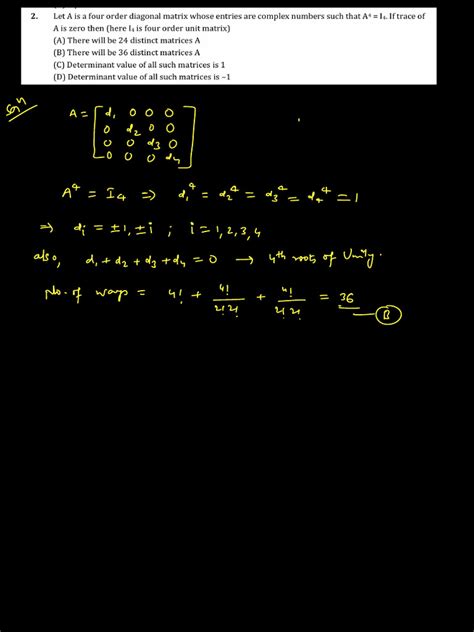 2. Let A is a four order diagonal matrix whose entries are complex numbers such that A⁴ = I₄. If trace of
A is zero then (here I₄ is four order unit matrix)
(A) There will be 24 distinct matrices A
(B) There will be 36 distinct matrices A
(C) Determinant value of all such matrices is 1
(D) Determinant value of all such matrices is –1
Solⁿ
A = [d₁ 0 0 0
0 d₂ 0 0
0 0 d₃ 0
0 0 0 d₄]
A⁴ = I₄ ⇒ d₁⁴ = d₂⁴ = d₃⁴ = d₄⁴ = 1
⇒ dᵢ = ±1, ±i ; i = 1, 2, 3, 4
also, d₁ + d₂ + d₃ + d₄ = 0 → 4th roots of Unity.
No. of ways = 4! + 4!/2!2! + 4!/2!2! = 36
B